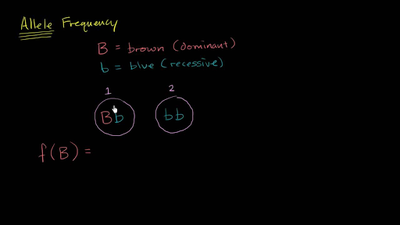 Allele Frequency
B = brown (dominant)
b = blue (recessive)
1 2
Bb bb
f(B) =